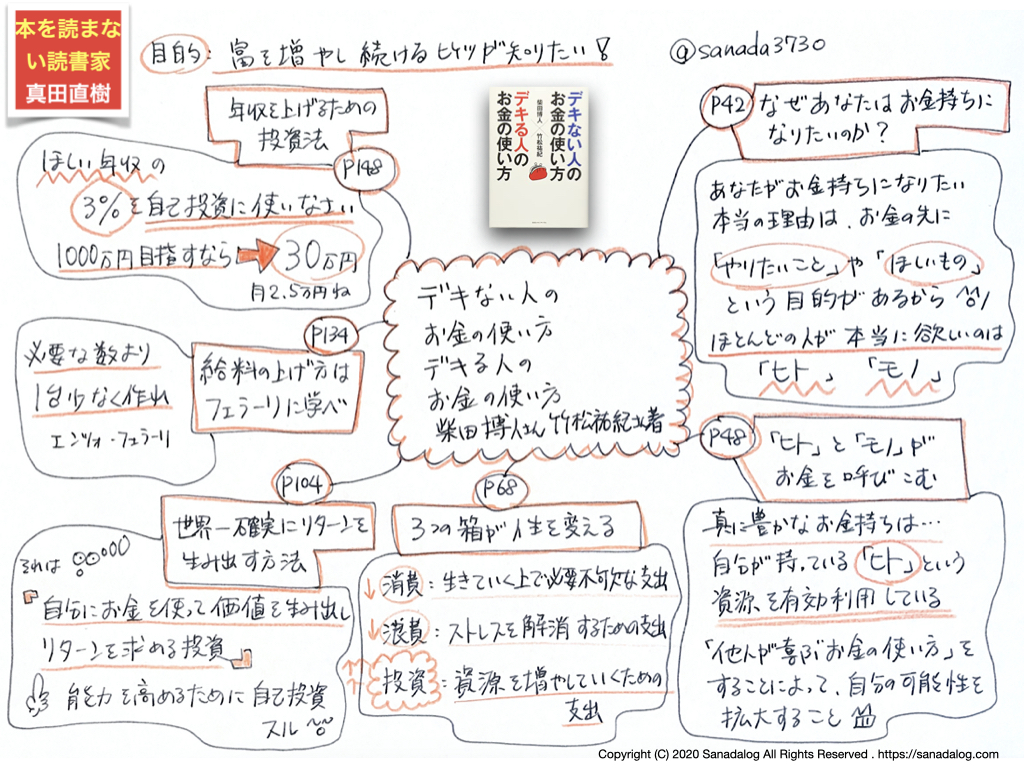 本を読まな
い読書家
真田直樹
目的：富を増やし続けるヒケツが知りたい！
@sanada3730
デキない人の
お金の使い方
デキる人の
お金の使い方
柴田博人
竹松祐紀
P42
なぜあなたはお金持ちに
なりたいのか？
あなたがお金持ちになりたい
本当の理由は、お金の先に
「やりたいこと」や「ほしいもの」
という目的があるから
ほとんどの人が本当に欲しいのは
「ヒト」「モノ」
P48
「ヒト」と「モノ」が
お金を呼びこむ
真に豊かなお金持ちは…
自分が持っている「ヒト」という
資源を有効利用している
「他人が喜ぶお金の使い方」を
することによって、自分の可能性を
拡大すること
デキない人の
お金の使い方
デキる人の
お金の使い方
柴田博人さん 竹松祐紀さん著
P68
3つの箱が人生を変える
↓消費：生きていく上で必要不可欠な支出
↓浪費：ストレスを解消するための支出
↑↑投資：資源を増やしていくための
支出
P104
世界一確実にリターンを
生み出す方法
それは
『自分にお金を使って価値を生み出し
リターンを求める投資』
能力を高めるために自己投資
スル
P134
給料の上げ方は
フェラーリに学べ
必要な数より
1台少なく作れ
エンツォ・フェラーリ
年収を上げるための
投資法
P148
ほしい年収の
3%を自己投資に使いなさい
1000万円目指すなら➡30万円
月2.5万円ね
Copyright (C) 2020 Sanadalog All Rights Reserved . https://sanadalog.com